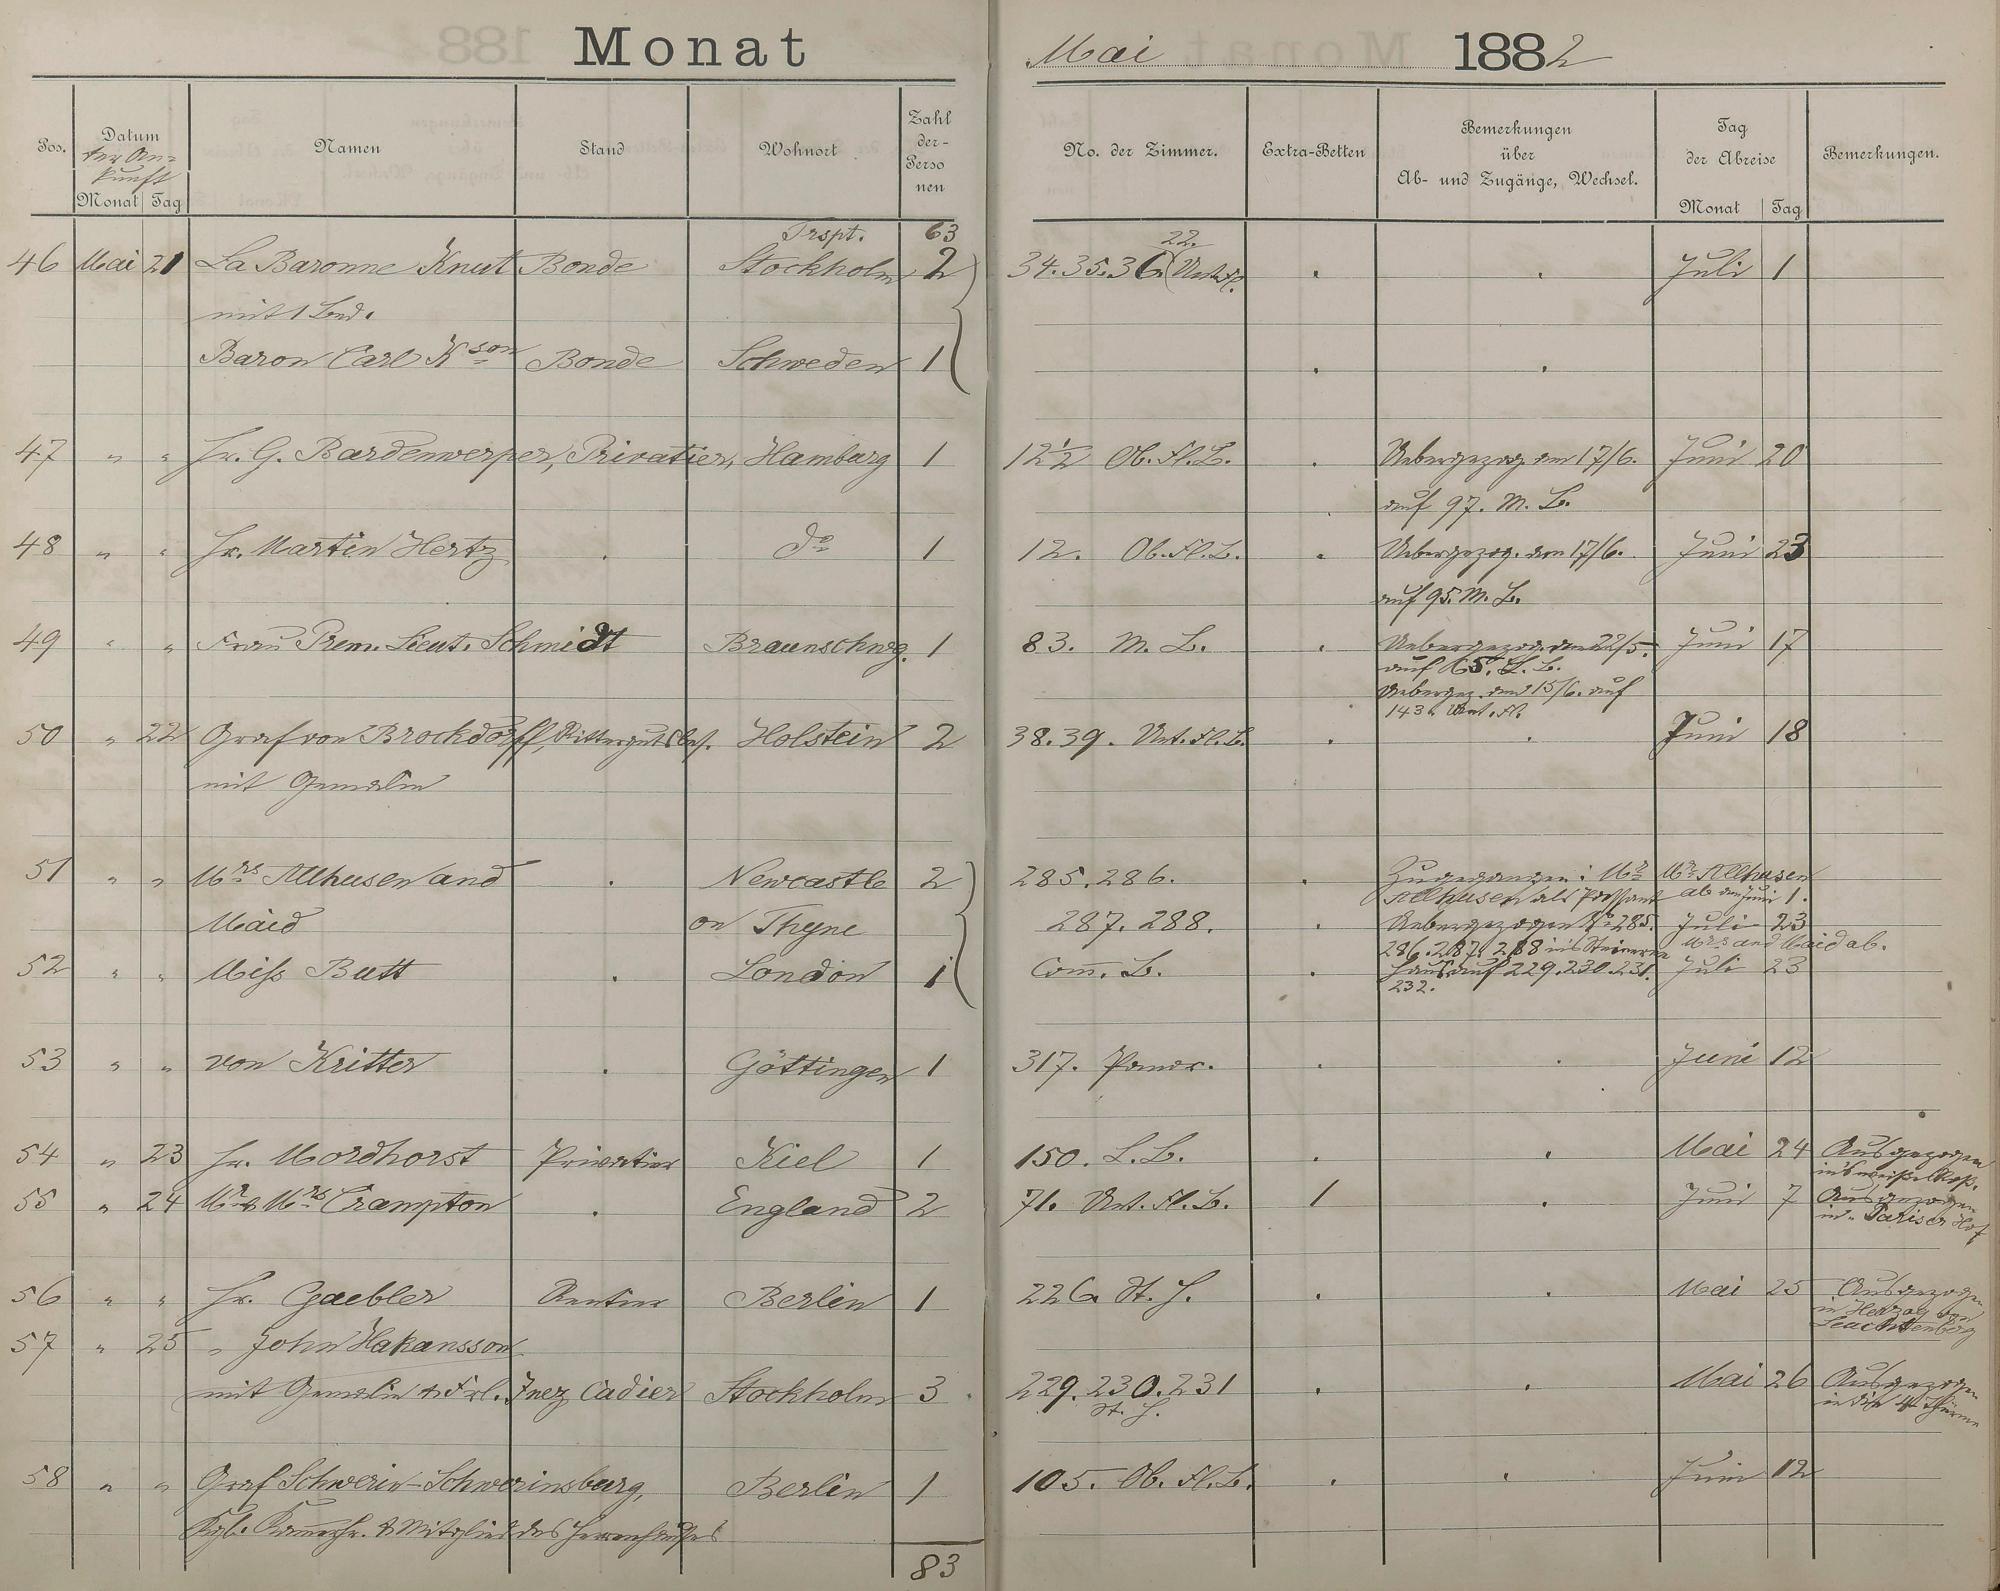 Monat Mai 1882
Pos. Datum der Ankunft Monat Tag Namen Stand Wohnort Zahl der Personen No. der Zimmer. Extra-Betten Bemerkungen über Ab- und Zugänge, Wechsel. Tag der Abreise Monat Tag Bemerkungen.
Trspt. 63
22.
46 Mai 21 La Baronne Knut Bonde Stockholm 2 34. 35. 36. Unt. Fl. . . Juli 1
mit 1 Bed.
Baron Carl Kson Bonde Schweden 1 . .
47 " " Hr. G. Bardenwerper, Privatier, Hamburg 1 12 1/2 Ob. Fl. B. . Uebergezog. am 17/6. Juni 20
auf 97. M. B.
48 " " Hr. Martin Hertz . do 1 12. Ob. Fl. B. . Uebergezog. am 17/6. Juni 23
auf 95. M. B.
49 " " Frau Prem. Lieut. Schmidt Braunschwg. 1 83. M. B. . Uebergezog. am 22/5. Juni 17
auf 65. L. B.
Uebergez. am 15/6. auf
143 Unt. Fl.
50 " 22 Graf von Brockdorff, Rittergutsbes. Holstein 2 38. 39. Unt. Fl. B. . . Juni 18
mit Gemalin
51 " " Mrs Allhusen and . Newcastle 2 285. 286. . Zugegangen: Mr Mr Allhusen
Allhusen als Passant ab den Juni 1.
Maid on Thyne 287. 288. . Uebergezogen No 285. Juli 23
286. 287. 288 in's Steinerne Mrs and Maid ab.
52 " " Miss Butt . London 1 Com. B. . Haus auf 229. 230. 231. Juli 23
232.
53 " " von Kritter . Göttingen 1 317. Panor. . . Juni 12
54 " 23 Hr. Mordhorst Privatier Kiel 1 150. L. B. . . Mai 24 Ausgezogen
in's weiße Roß.
55 " 24 Mr & Mrs Crampton . England 2 71. Unt. Fl. B. 1 . Juni 7 Ausgezogen
in Pariser Hof
56 " " Hr. Gaebler Rentier Berlin 1 226. St. H. . . Mai 25 Ausgezogen
in Herzog von
Leuchtenberg
57 " 25 " John Hakansson
mit Gemalin & Frl. Inez Cadier Stockholm 3 229. 230. 231 . . Mai 26 Ausgezogen
St. H. in die 4 Thürme
58 " " Graf Schwerin-Schwerinsburg, Berlin 1 105. Ob. Fl. B. . . Juni 12
Kgl. Kammerhr. & Mitglied des Herrenhauses
83